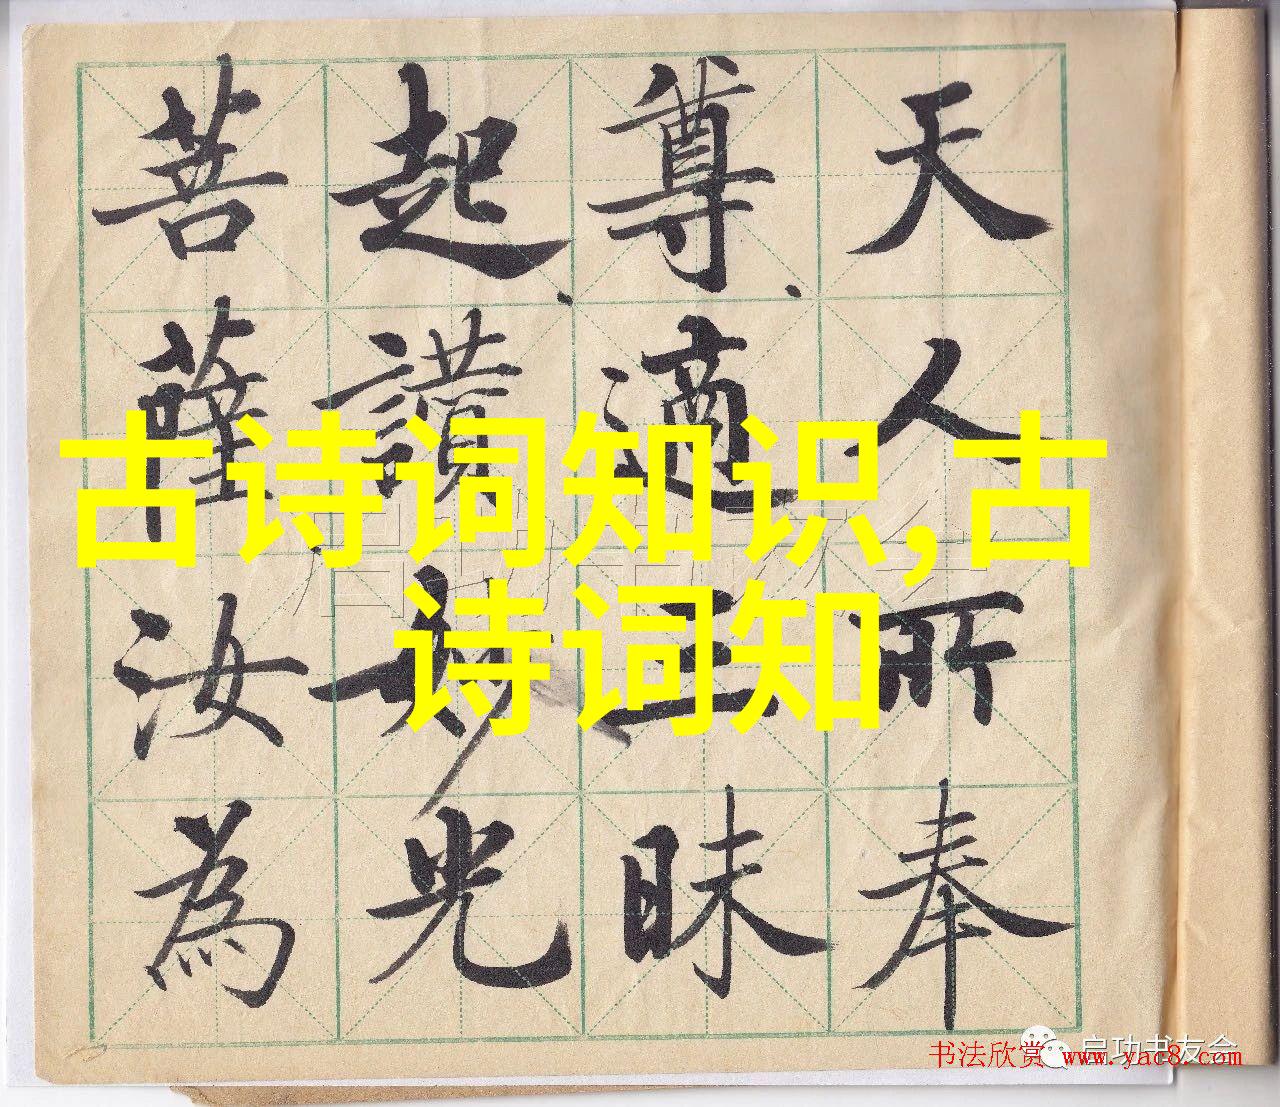 天人所奉
尊、適三昧
起、讃妙光
菩薩汝為
古诗词知识,古
诗词知
启功书友会
启功书友会
书法欣赏 www.yac8.com